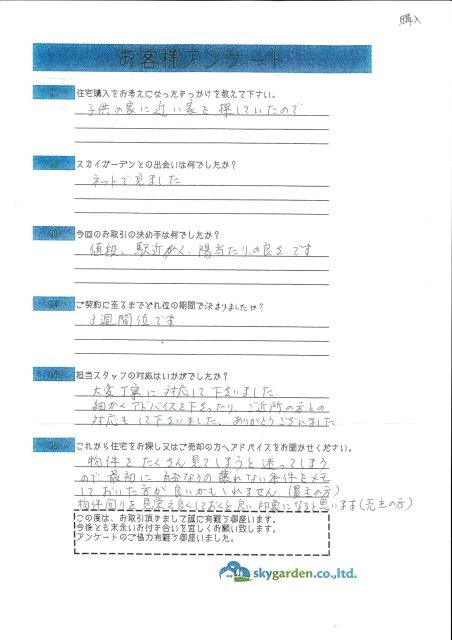 購入
お客様アンケート
住宅購入をお考えになったきっかけを教えて下さい。
子供の家に近い家を探していたので
スカイガーデンとの出会いは何でしたか?
ネットで見ました
今回のお取引の決め手は何でしたか?
値段、駅近がく、陽当たりの良さです
ご契約に至るまでどれ位の期間で決まりましたか?
3週間位です
担当スタッフの対応はいかがでしたか?
大変丁寧に対応して下さいました
細かくアドバイスを下さったり、ご近所の方との
対応もして下さいました。ありがとうございました
これから住宅をお探し又はご売却の方へアドバイスをお聞かせください。
物件をたくさん見てしまうと迷ってしまう
ので最初に自分なりの譲れない条件をメモ
しておいた方が良いかもしれません(買主の方)
物件回りを見栄え良くしておくと良い印象になると思います(売主の方)
この度は、お取引頂きまして誠に有難う御座います。
今後とも末永いお付き合いを宜しくお願い致します。
アンケートのご協力有難う御座いました。
skygarden.co.,ltd.